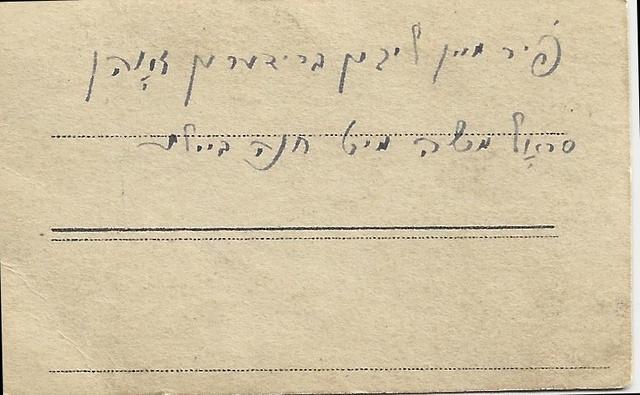 פֿיר מיין ליבען ברידערס זאָהן
סראָל משה מיט חנה ביילע